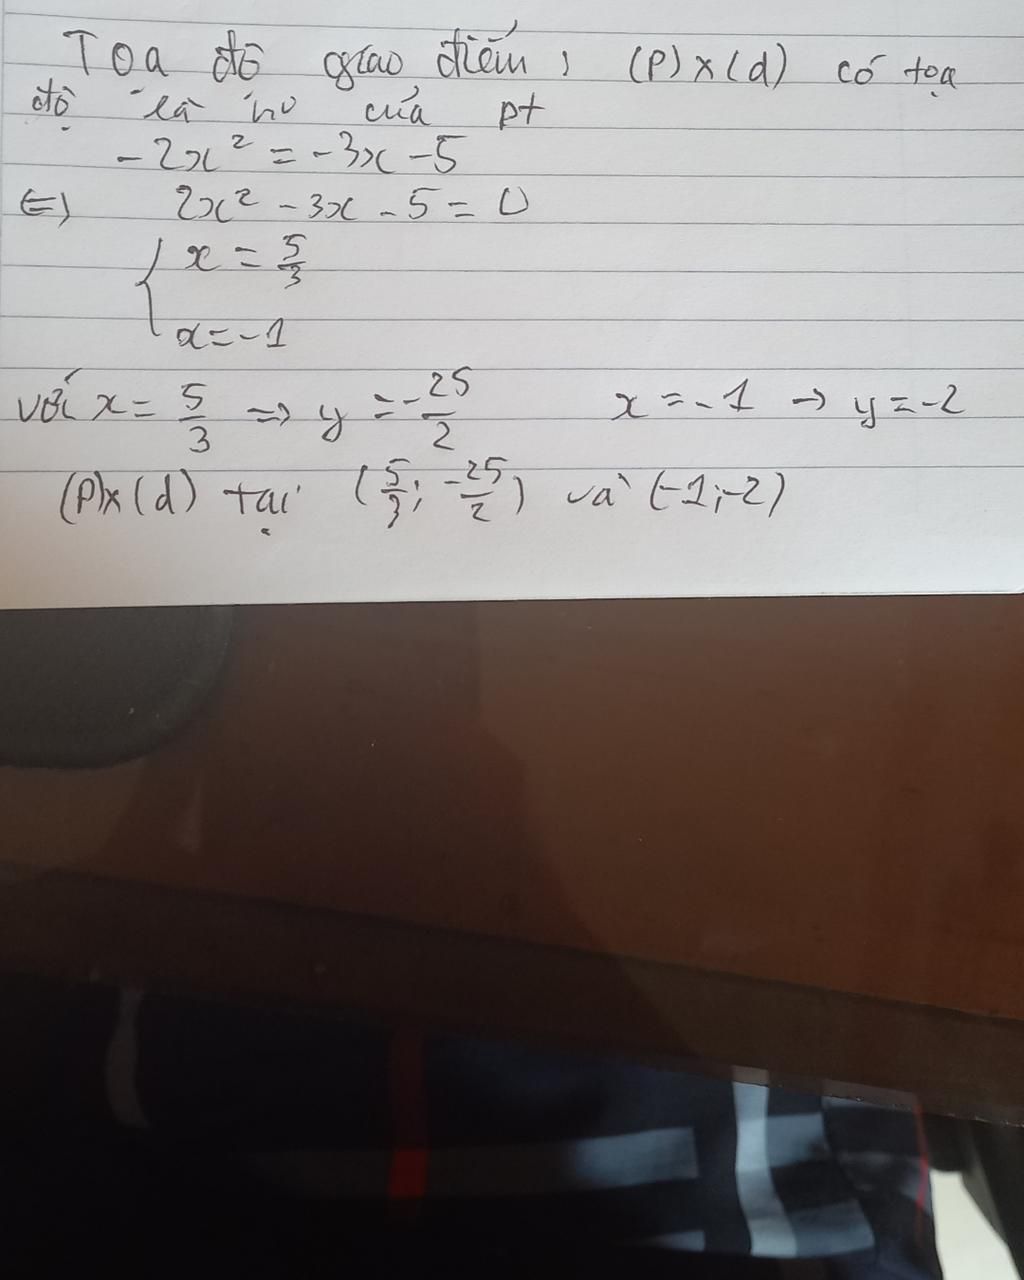 Toạ đô giao điểm, (P)x(d) có toạ
độ là no của pt
-2x² = -3x - 5
⇔ 2x² - 3x - 5 = 0
{ x = 5/3
x = -1
với x = 5/3 => y = -25/2 x = -1 → y = -2
(P)x(d) tại (5/3; -25/2) và (-1;-2)